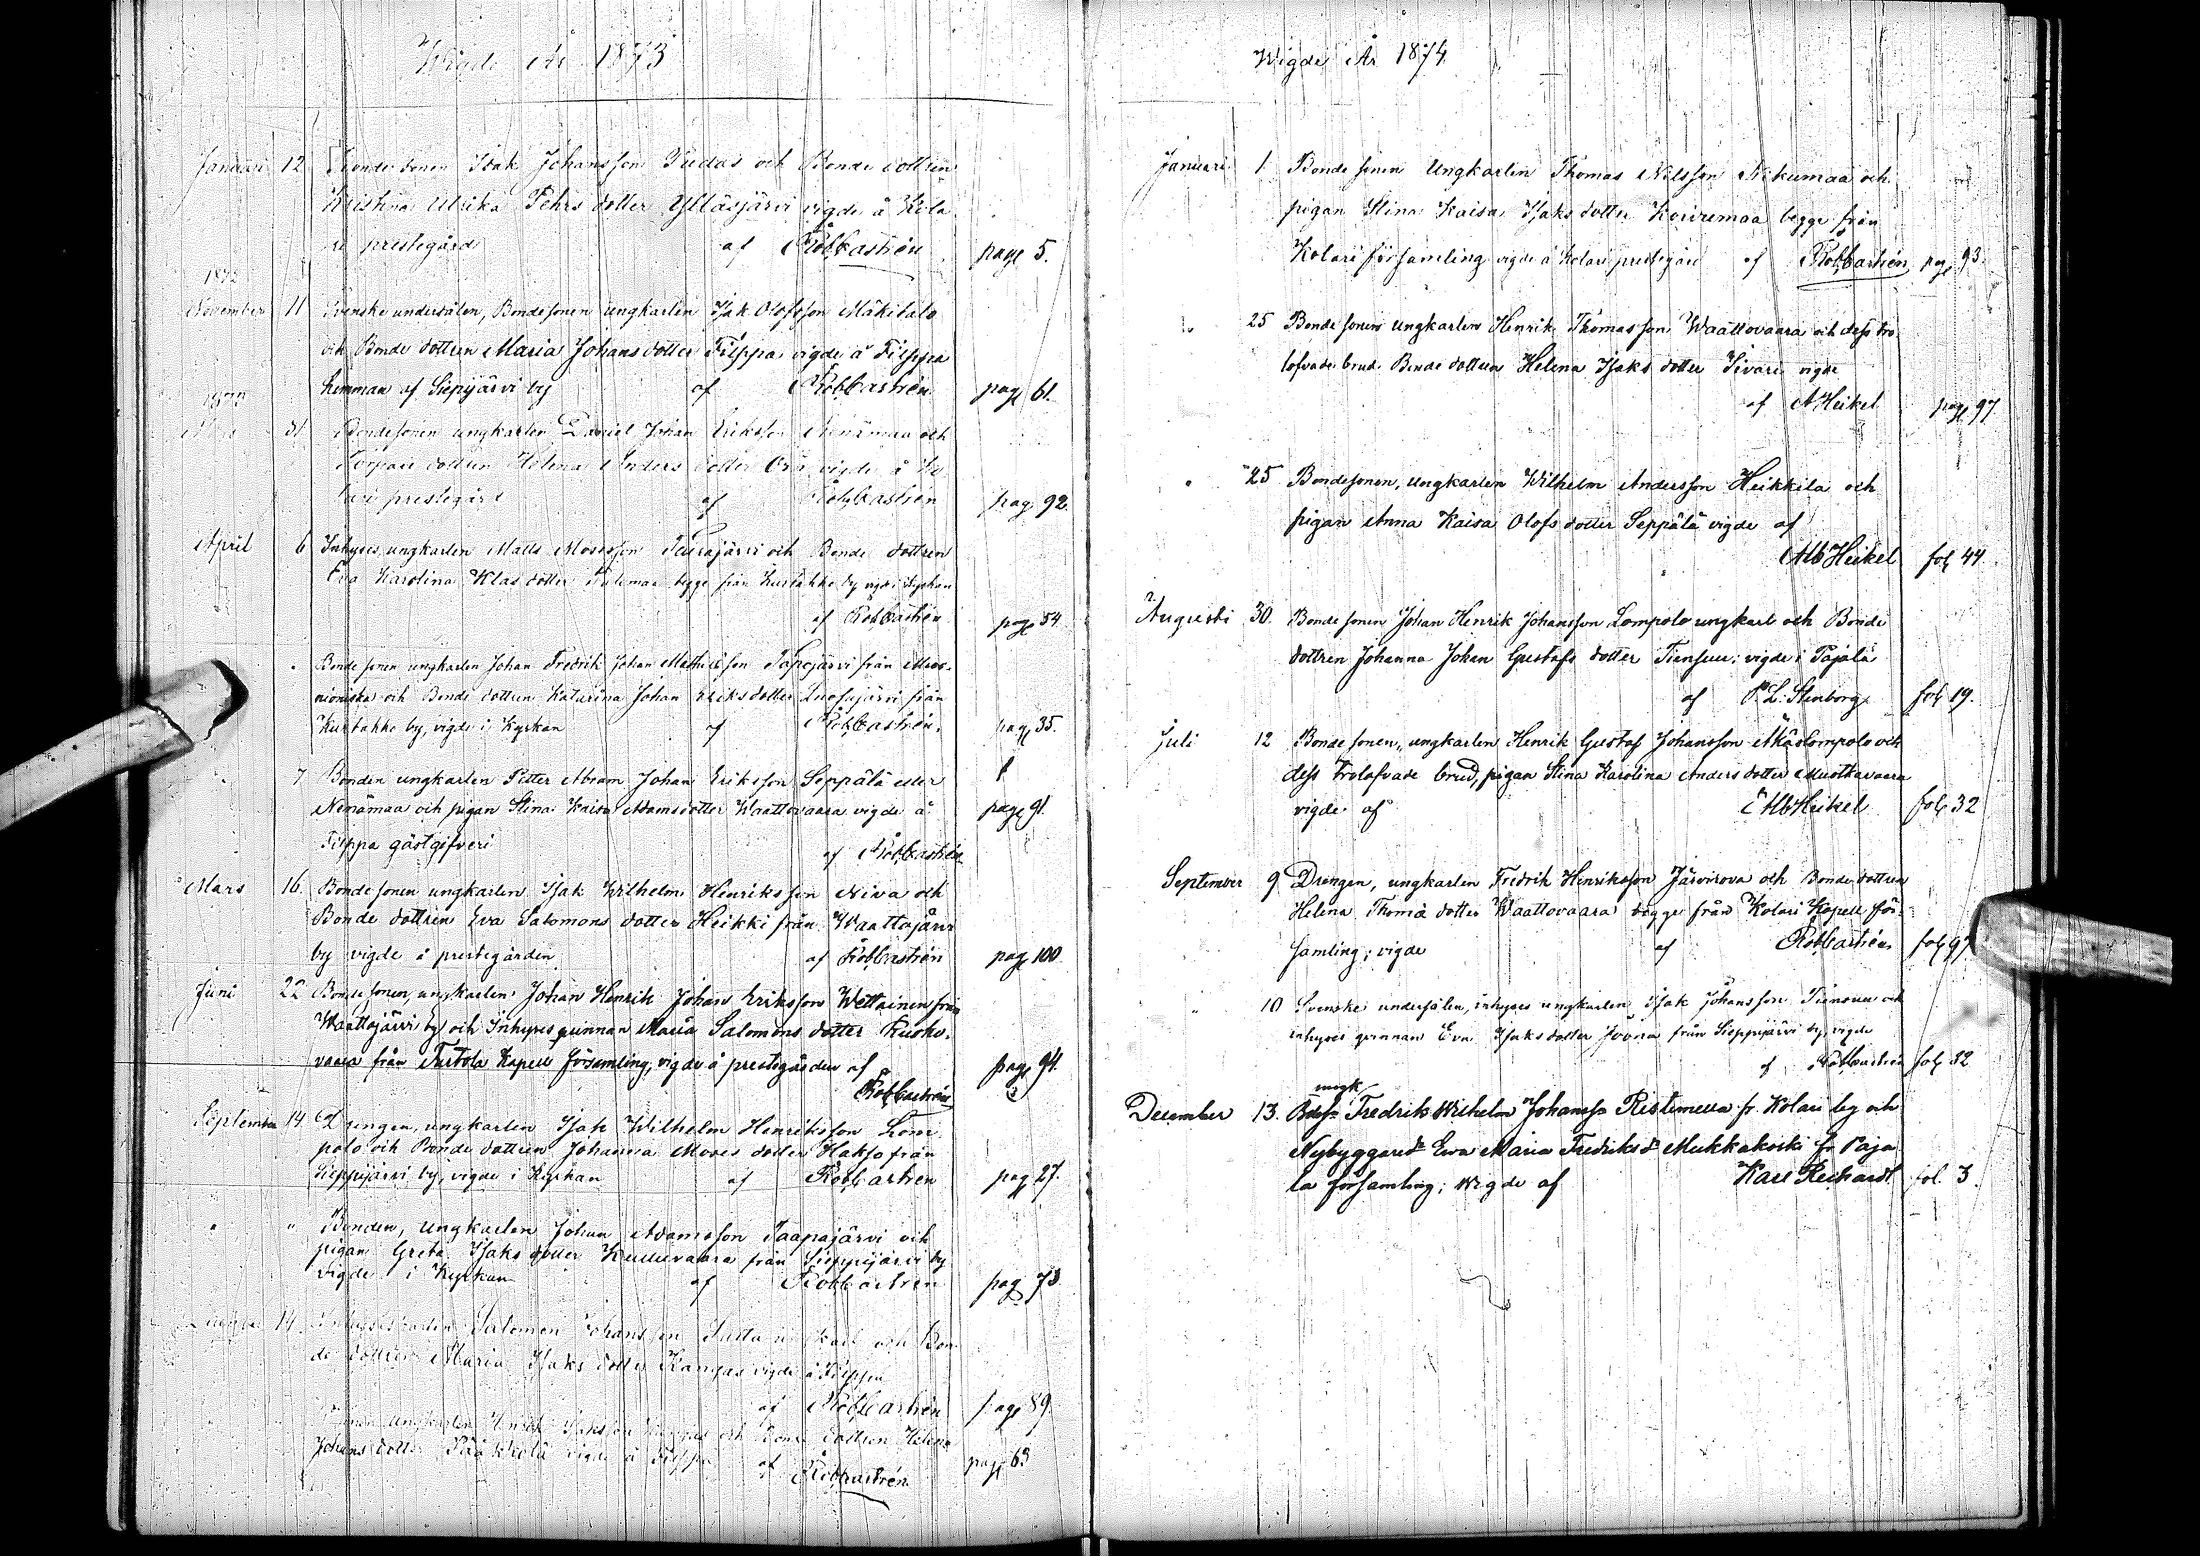 Wigde År 1873
Januari 12 Bondesonen Isak Johansson Tudas och Bonde dottren
Kristina Ulrika Pehrs dotter Ylläsjärvi vigde å Kola
ri prestegård af RobCastrén pag 5.
1872
November 11 Svenske undersåten, Bondesonen ungkarlen Isak Olofsson Mäkitalo
och Bonde dottren Maria Johans dotter Filppa vigde å Filppa
hemman af Sieppijärvi by af RobCastrén pag 61.
1873
31 Bondesonen ungkarlen Daniel Johan Eriksson Nenämaa och
Torpare dottren Helena Anders dotter vigde å Ko
lari prestegård af RobCastrén pag 92.
April 6 Inhyses ungkarlen Matts Mosesson Teurajärvi och Bonde dottren
Eva Karolina Klas dotter begge från Kurtakko by vigde i Kyrkan
af RobCastrén pag 54
Bonde sonen ungkarlen Johan Fredrik Johan Mathiasson Tapojärvi från Muo-
nioniska och Bonde dottren Katarina Johan Eriks dotter Luosujärvi från
Kurtakko by, vigde i Kyrkan af RobCastrén. pag 35.
7 Bonden ungkarlen Petter Abram Johan Eriksson Seppälä eller
Nenämaa och pigan Stina Kaisa Adamsdotter Waattovaara vigde å pag 91.
Filppa gästgifveri af RobCastrén
Mars 16 Bonde sonen ungkarlen Isak Wilhelm Henriksson Niva och
Bonde dottren Eva Salomons dotter Heikki från Waattojärvi
by vigde å prestegården af RobCastrén pag 100
Juni 22 Bonde sonen, ungkarlen Johan Henrik Johan Eriksson Wettainen från
Waattojärvi by och Inhyses qvinnan Maria Salomons dotter Kusko-
vaara från Turtola Kapell församling, vigde å prestegården af pag 94.
RobCastrén
September 14 Drengen, ungkarlen Isak Wilhelm Henriksson Lom
polo och Bonde dottren Johanna Moses dotter Hakso från
Sieppijärvi by, vigde i Kyrkan af RobCastrén pag 27.
" " Bonden, ungkarlen Johan Adamsson Taapajärvi och
pigan Greta Isaks dotter Kuluvaara från Sieppijärvi by
vigde i Kyrkan af RobCastrén pag 73
14. Salomon Johansson och Bon
de dottren Maria Isaks dotter Kangas vigde å Filppa
af RobCastrén pag 89
ungkarlen Henrik Isaksson och Bonde dottren Helena
Johans dotter Pääkkölä vigde å Filppa af RobCastrén pag 63
Wigde År 1874
Januari 1 Bonde sonen Ungkarlen Thomas Nilsson Nikumaa och
pigan Stina Kaisa Isaks dotter Koivumaa begge från
Kolari församling vigde å Kolari prestegård af RobCastrén pag 93.
" 25 Bonde sonen ungkarlen Henrik Thomasson Waattovaara och dess tro
lofvade brud Bonde dottren Helena Isaks dotter Sivari vigde
af A Heikel pag 97
" 25 Bondesonen, ungkarlen Wilhelm Andersson Heikkilä och
pigan Anna Kaisa Olofs dotter Seppälä vigde af
Alb Heikel fol 44
Augusti 30. Bonde sonen Johan Henrik Johansson Lompolo ungkarl och Bonde
dottren Johanna Johan Gustafs dotter Tiensuu; vigde i Pajala
af P. L. Stenborg fol 19.
Juli 12 Bonde sonen, ungkarlen Henrik Gustaf Johansson Äkäslompolo och
dess Trolofvade brud, pigan Stina Karolina Anders dotter Mustavaara
vigde af Alb Heikel fol 32
September 9 Drengen, ungkarlen Fredrik Henriksson Järvirova och Bonde dottren
Helena Thomä dotter Waattovaara begge från Kolari Kapell för-
samling; vigde af RobCastrén fol 97
" 10 Svenske undersåten, inhyses ungkarlen Isak Johansson Tiensuu och
inhyses qvinnan Eva Isaks dotter Jvona från Sieppijärvi by, vigde
af RobCastrén fol 82
ungk
December 13. Bdess Fredrik Wilhelm Johanss Ristimella fr. Kolari by och
Nybyggared Eva Maria Fredriksd Mukkakoski fr Paja
la församling; wigde af Karl Reichardt fol. 3.